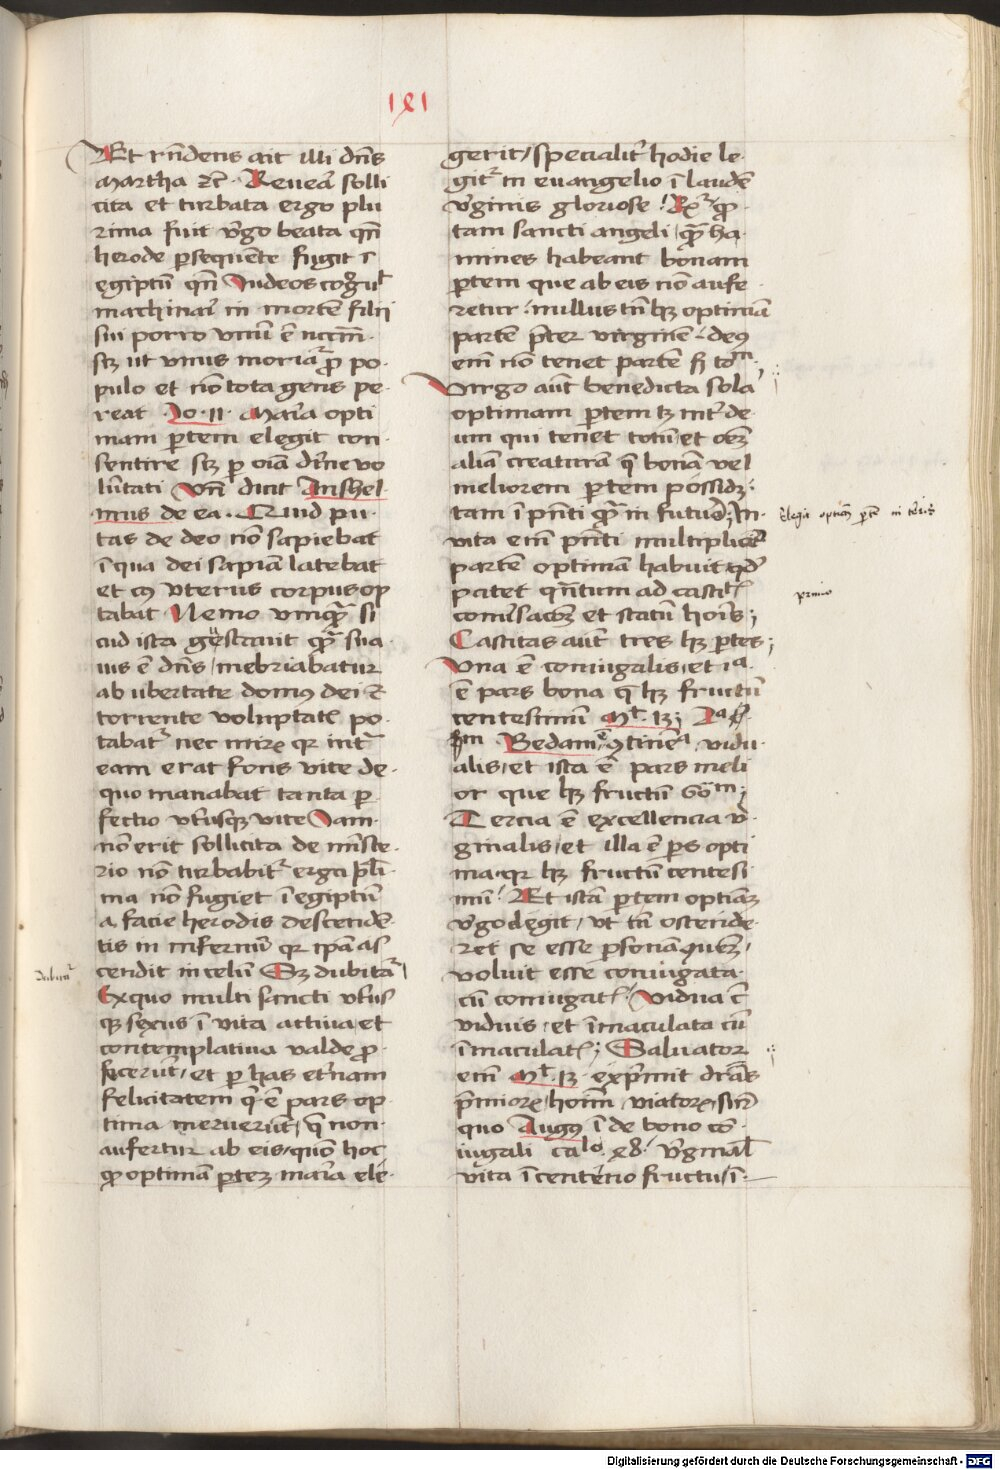 1ꝭ1
Et rñdens ait illi dñs
Martha ⁊c̄. Reuera solli
cita et turbata ergo plu
rima fuit v̾go beata qñ
herode ꝑsequēte fugit ī
egiptū qñ Iudeos
machinar̄ in mortē filii
sui porro vnū ē
scꝫ ut vnus moriat᷑ ꝓ po-
pulo et nō tota gens pe-
reat Io·11· Maria opti
mam ꝑtem elegit con-
sentire scꝫ ꝑ oīa diuine vo
lūtati vn̄ dicit Anshel
mus de ea. Quid pu-
tas de deo nō sapiebat
ī qua dei sapīa latebat
et ī cꝰ vterus corpus op
tabat Nemo vmqᷓ si
cud ista gestauit qᷓ sua-
uis ē dñs, inebriabatur
ab ubertate domꝰ dei ⁊
torrente voluptatꝭ po-
tabat᷑ nec mirꝝ qr intᷓ
eam erat fons vite de-
quo manabat tanta ꝑ
fectio vt̾usqꝫ vite Iam-
nō erit sollicita de mīste-
rio nō turbabit᷑ erga pl̄i-
ma nō fugiet ī egiptū
a facie herodis descendē-
tis in infernū qr ipa as
cendit in celū Sꝫ dubitat᷑
Exquo multi sancti vt̾us
qꝫ sexus ī vita actiua et
contemplatiua valde ꝓ-
fecerūt, et ꝑ has et̾nam
felicitatem q̄ ē pars op-
tima meruerūt, q̄ non-
aufertur ab eis, quō hoc
ꝙ optimam ꝑtem maria ele-
dubitat᷑
gerit, specialit̾ hodie le-
git᷑ in euangelio ī laudē
v̾ginis gloriose! Rx᷑ ꝙ
tam sancti angeli, qᷓ ho-
mines habeant bonam
ꝑtem que ab eis nō aufe-
retur: nullus tn̄ hꝫ optimā
partē p̄ter virginē: deꝰ
em̄ nō tenet partē sꝫ totū
Virgo aūt benedicta sola
optimam ꝑtem tꝫ int̾ de-
um qui tenet totū et oēꝫ
aliā creaturā q̄ bonā vel
meliorem ꝑtem possidꝫ
tam ī pn̄ti qᷓ in futuro; In-
vita em̄ pn̄ti multiplicit̾
partē optimā habuit qd̾
patet qn̄tum ad castitꝭ
et statū hoīs;
Castitas aūt tres hꝫ ꝑtes;
Vna ē coniugalis, et ia
ē pars bona q̄ hꝫ fructū
centesimū Mt. 13;
Bedam, ꝯtinēs, vidu-
alis, et ista ē pars meli
or que hꝫ fructū 60m;
Tercia ē excellencia v̾-
ginalis, et illa ē ꝑs opti
ma, qr hꝫ fructū centesi
mū! Et istā ꝑtem optimā
v̾go elegit, vt tn̄ ostende-
ret se esse ꝑsonā
voluit esse coniugata
cū coniugatꝭ, vidua cū
viduis, et īmaculata cū
īmaculatꝭ; Saluator
em̄ Mt. 13 exp̄mit
p̄miorꝝ hoīm, viatorꝝ, scd̄m
quo Augꝰ ī de bono cō-
iugali ca°. 18. v̾ginal̄
vita ī centēno fructu, ī-
Elegit optimā ꝑtē in
primo
Digitalisierung gefördert durch die Deutsche Forschungsgemeinschaft - DFG